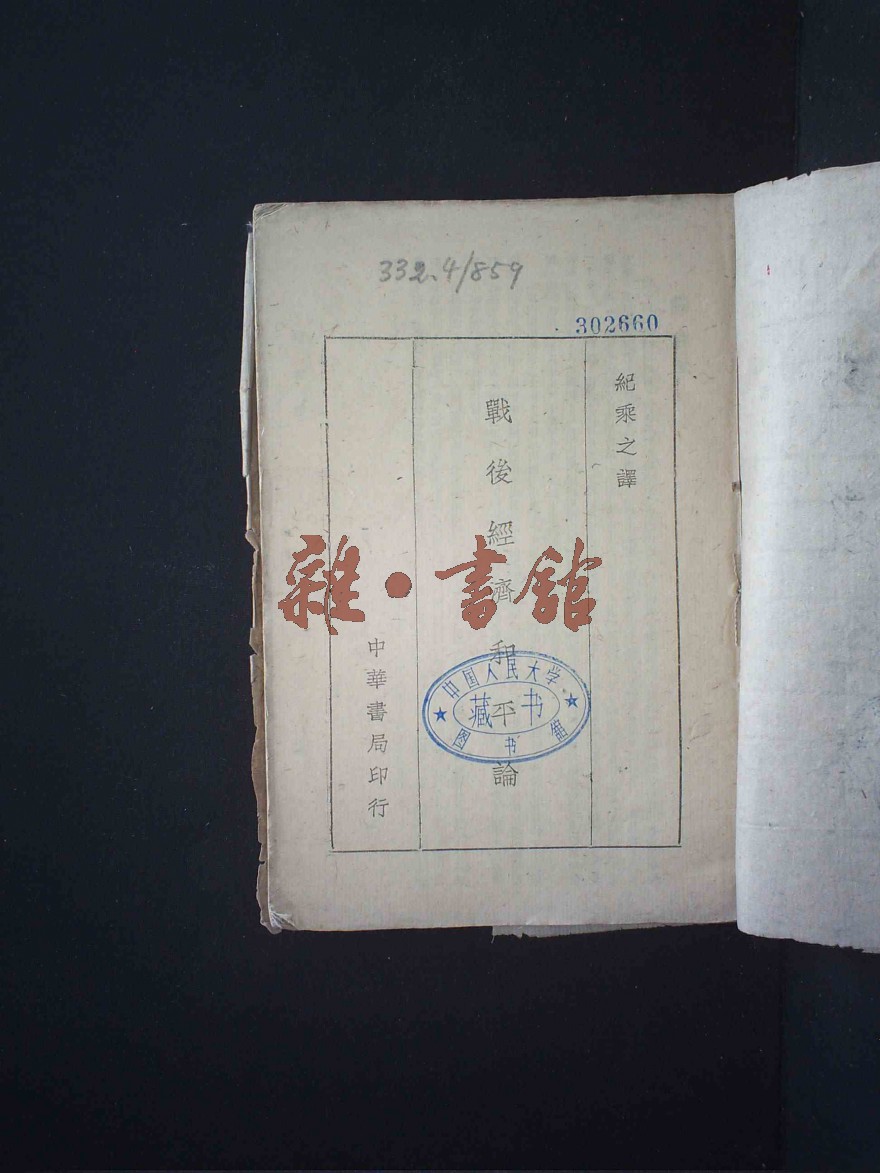 332.4/859
302660
紀乘之譯
戰後經濟和平論
中華書局印行
中国人民大学
藏书
图书馆
雜·書館